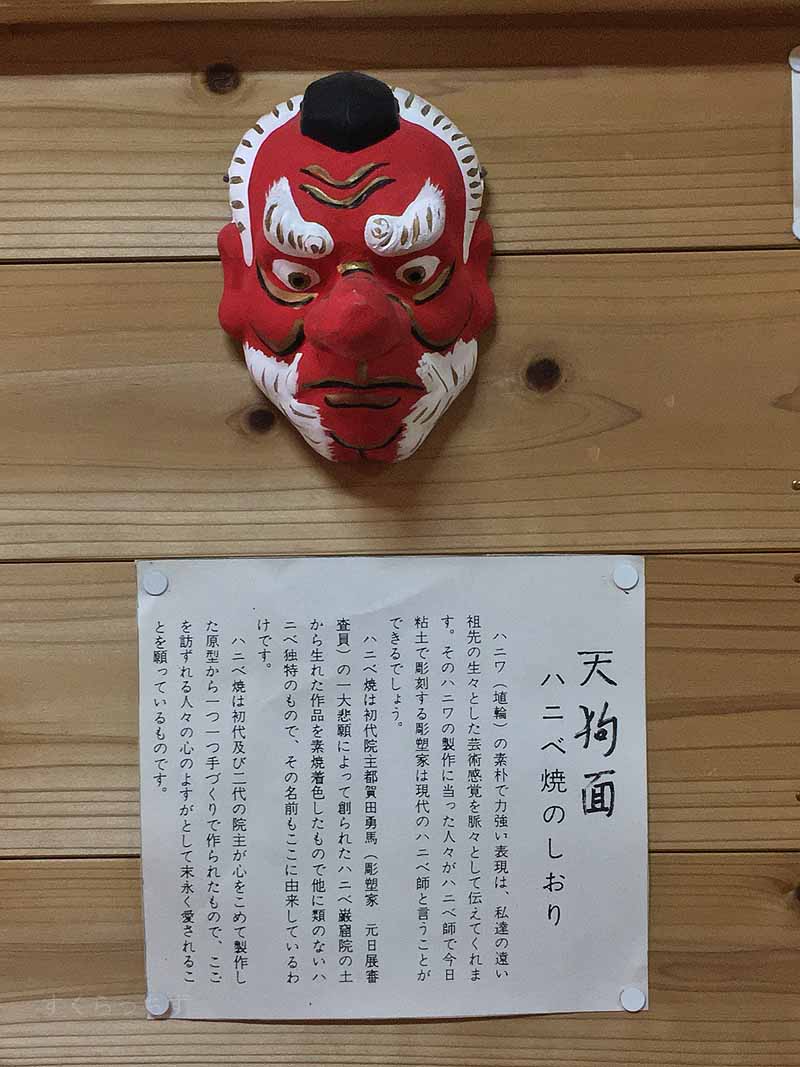 天狗面
ハニベ焼のしおり
ハニワ（埴輪）の素朴で力強い表現は、私達の遠い
祖先の生々とした芸術感覚を脈々として伝えてくれま
す。そのハニワの製作に当った人々がハニベ師で今日
粘土で彫刻する彫塑家は現代のハニベ師と言うことが
できるでしょう。
ハニベ焼は初代院主都賀田勇馬（彫塑家　元日展審
査員）の一大悲願によって創られたハニベ巌窟院の土
から生れた作品を素焼着色したもので他に類のないハ
ニベ独特のもので、その名前もここに由来しているわ
けです。
ハニベ焼は初代及び二代の院主が心をこめて製作し
た原型から一つ一つ手づくりで作られたもので、ここ
を訪ずれる人々の心のよすがとして末永く愛されるこ
とを願っているものです。